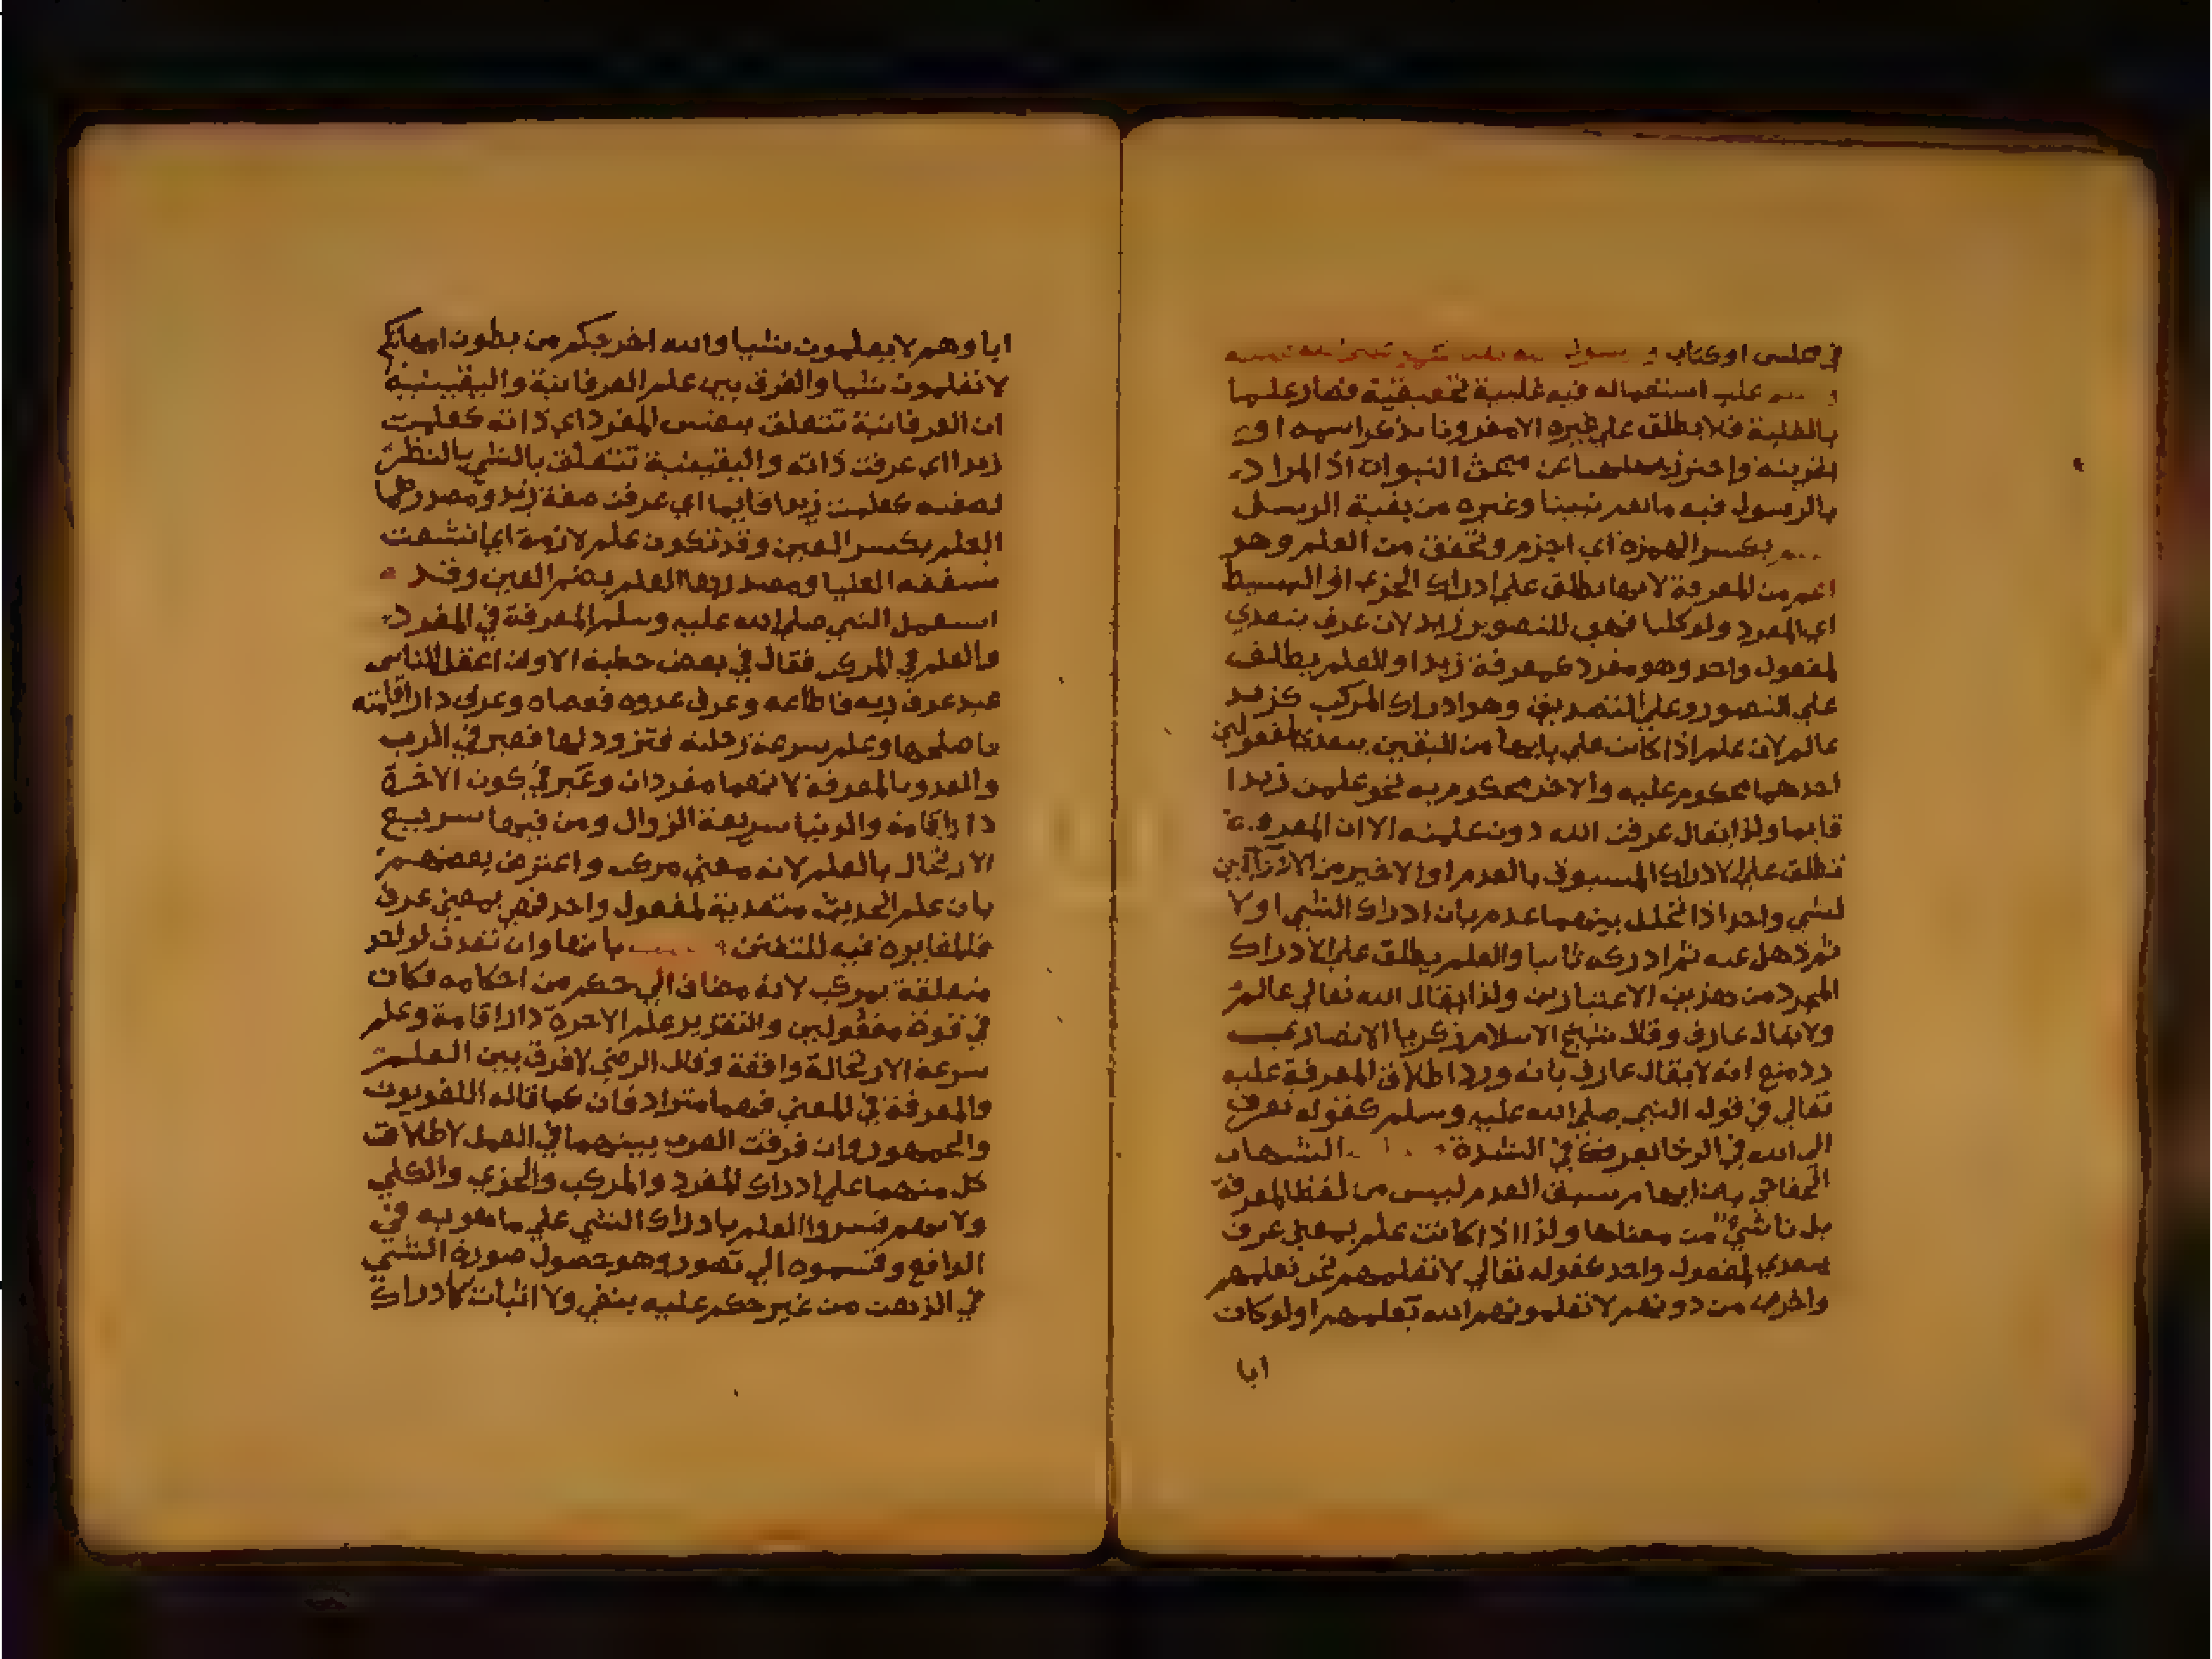 في مجلس او كتاب و رسول
علب استعماله فيه غلبة تحقيقية فصار علما
بالغلبة فلا يطلق علي غيره الا مقرونا بذكر اسمه او
قرينة واحترز عن مبحث النبوات اذ المراد
بالرسول فيه ما يعم نبينا وغيره من بقية الرسل
بكسر الهمزه اي اجزم وتحقق من العلم وهو
اعم من المعرفة لانها تطلق علي ادراك الجزء او البسيط
اي المفرد ولو كليا فهي للتصور زيد لان عرف يتعدي
لمفعول واحد وهو مفرد كمعرفة زيد او العلم يطلق
علي التصور وعلي التصديق وهو ادراك المركب كزيد
عالم لان علم اذا كانت علي بابها من اليقين يتعدي لمفعولين
احدهما محكوم عليه والاخر محكوم به نحو علمت زيدا
قايما ولذا يقال عرفت الله دون علمته الا ان المعرفة
تطلق علي الادراك المسبوق بالعدم او الاخير من الادراكين
لشي واحد اذا تخلل بينهما عدم بان ادراك الشي اولا
ثم ذهل عنه ثم ادركه ثانيا والعلم يطلق علي الادراك
المجرد من هذين الاعتبارين ولذا يقال الله تعالي عالم
ولا يقال عارف وقال شيخ الاسلام زكريا الانصاري
رد منع انه لا يقال عارف بانه ورد اطلاق المعرفة عليه
تعالي في قوله النبي صلي الله عليه وسلم كقوله تعرف
الي الله في الرخا يعرفك في الشدة الشهاب
الخفاجي بان ايهام سبق العدم ليس من لفظ المعرفة
بل ناشئ من معناها ولذا اذا كانت علم بمعني عرف
يتعدي لمفعول واحد كقوله تعالي لا تعلمهم نحن نعلمهم
واخرين من دونهم لا تعلمونهم الله يعلمهم او لو كان
ابا
اباوهم لا يعلمون شيا والله اخرجكم من بطون امهاتكم
لا تعلمون شيا والفرق بين علم العرفانية واليقينية
ان العرفانية تتعلق بنفس المفرد اي ذاته كعلمت
زيدا اي عرفت ذاته واليقينية تتعلق بالشي بالنظر
لصفته كعلمت زيدا قايما اي عرفت صفة زيد ومصدرهما
العلم بكسر العين وقد تكون علم لازمة اي انشقت
شفته العليا ومصدرها العلم بضم العين وقد
استعمل النبي صلي الله عليه وسلم المعرفة في المفرد
والعلم في المركب فقال في بعض خطبه الا وان اعقل الناس
عبد عرف ربه فاطاعه وعرف عدوه فعصاه وعرف دار اقامته
فاصلحها وعلم سرعة رحلته فتزود لها فعبر في الرب
والعدو بالمعرفة لانهما مفردان وعبر في كون الاخرة
دار اقامة والدنيا سريعة الزوال ومن فيها سريع
الارتحال بالعلم لانه معني مركب واعترض بعضهم
بان علم الحديث متعدية لمفعول واحد فهي بمعني عرف
فالمغايرة فيه للتفنن بانها وان تعدت لواحد
متعلقة بمركب لانه مضاف الي حكم من احكامه فكان
في قوة مفعولين والتقدير علم الاخرة دار اقامة وعلم
سرعة الارتحالة واقعة وقال الرضي لا فرق بين العلم
والمعرفة في المعني فهما مترادفان كما قاله اللغويون
والجمهور وان فرقت العرب بينهما في العمل لاطلاق
كل منهما علي ادراك المفرد والمركب والجزي والكلي
ولانهم فسروا العلم بادراك الشي علي ما هو به في
الواقع وقسموه الي تصور وهو حصول صورة الشي
في الذهن من غير حكم عليه بنفي ولا اثبات كادراك